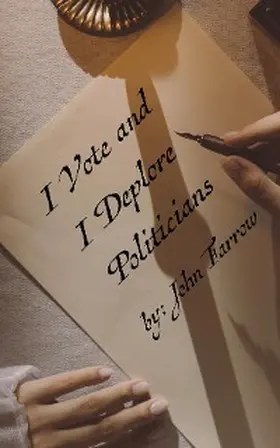 I Vote and
I Deplore
Politicians
by: John Farrow